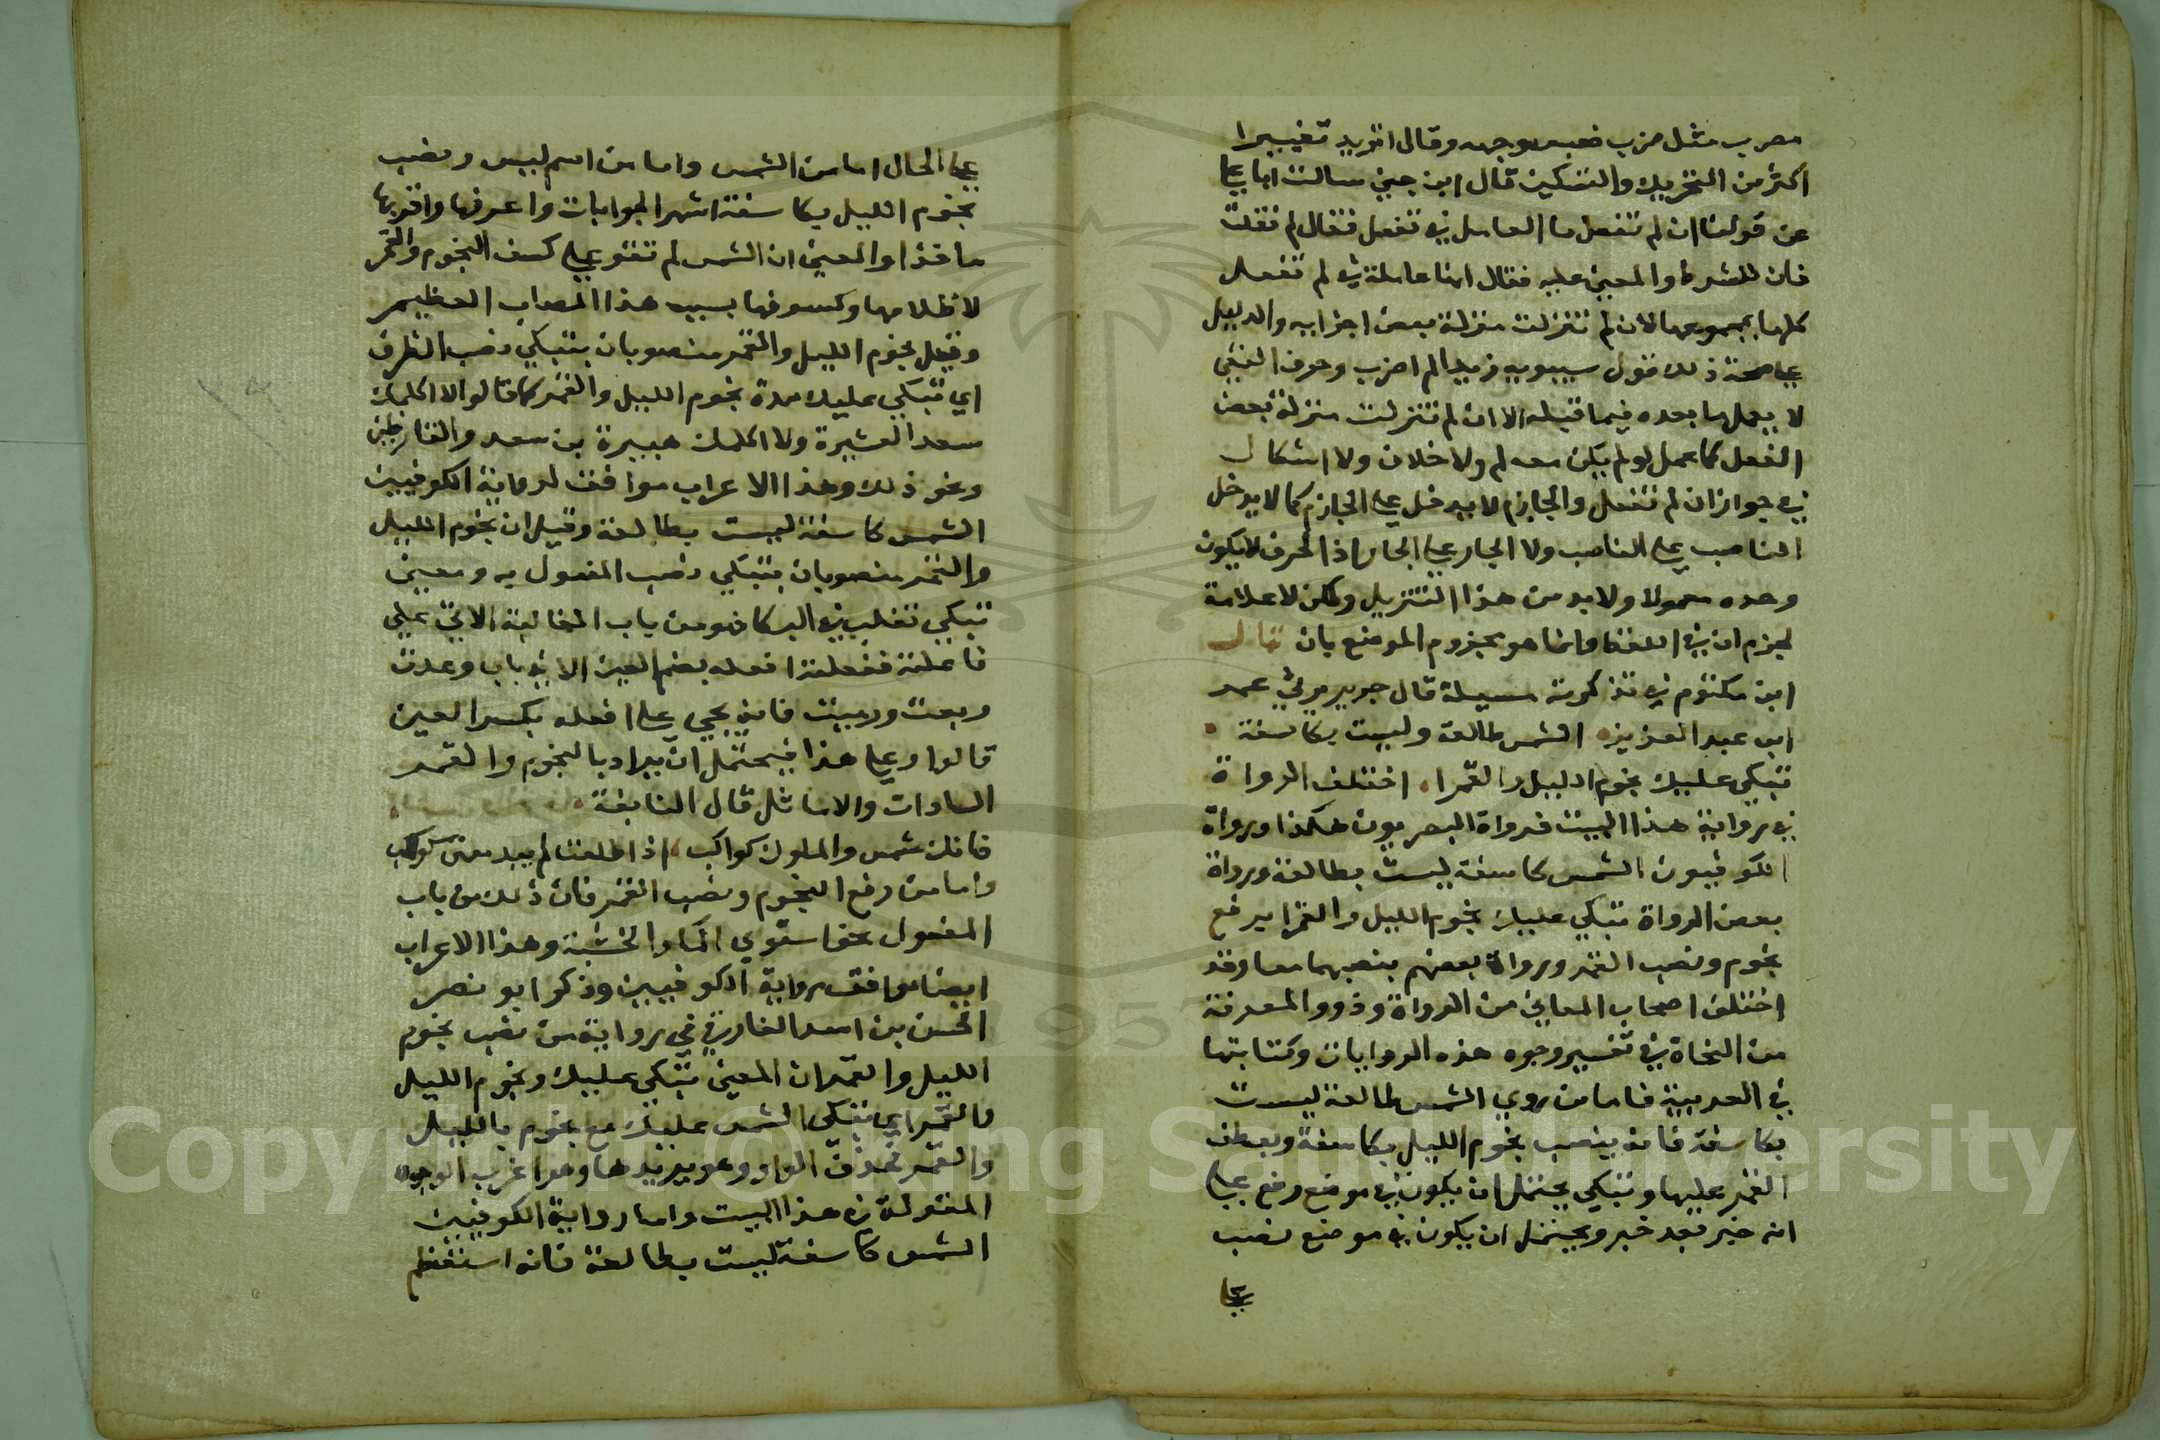 مصرب مثل ضرب فعبس وجهه وقال اتريد تغييرا
اكثر من التحريك والتسكين قال ابن جني سالت ابا علي
عن قولنا ان لم تفعل ما العامل في تفعل فقال لم فقلت
فان للشرط والمعني عليه فقال انها عاملة في لم تفعل
كلها بمجموعها لان لم تنزلت منزلة بعض اجزايه والدليل
علي صحة ذلك قول سيبويه زيدا لم اضرب وحرف النفي
لا يعمل ما بعده فيما قبله الا ان لم تنزلت منزلة بعض
الفعل كما عمل لو لم يكن معه لم ولا خلاف ولا اشكال
في جواز ان لم تفعل والجازم لا يدخل علي الجازم كما لا يدخل
الناصب علي الناصب ولا الجار علي الجار اذ الحرف لا يكون
وحده معمولا ولا بد من هذا التنزيل ولكن لا علامة
لجزم ان في اللفظ وانما هو مجزوم الموضع بان قال
ابن مكتوم في تذكرته مسيلة قال جرير يرثي عمر
ابن عبد العزيز الشمس طالعة وليست بكاسفة
تبكي عليك نجوم الليل والقمرا اختلف الرواة
في رواية هذا البيت فرواة البصريون هكذا ورواة
الكوفيون الشمس كاسفة ليست بطالعة ورواة
بعض الرواة تبكي عليك نجوم الليل والقمرا يرفع
نجوم ونصب القمر ورواة بعضهم بنصبهما معا وقد
اختلف اصحاب المعاني من الرواة وذوو المعرفة
من النحاة في تفسير وجوه هذه الروايات وكتابتها
في العربية فاما من روي الشمس طالعة ليست
بكاسفة فانه ينصب نجوم الليل بكاسفة ويعطف
القمر عليها وتبكي يحتمل ان يكون في موضع رفع علي
انه خبر بعد خبر ويحتمل ان يكون في موضع نصب
علي
علي الحال اما من الشمس واما من اسم ليس ونصب
نجوم الليل بكاسفة اشهر الجوابات واعرفها واقربها
ماخذا والمعني ان الشمس لم تقو علي كسف النجوم والقمر
لاظلامها وكسوفها بسبب هذا المصاب العظيم
وقيل نجوم الليل والقمر منصوبان بتبكي نصب الظرف
اي تبكي عليك مدة نجوم الليل والقمر كما قالوا لا اكلمك
سعد العشيرة ولا اكلمك هبيرة بن سعد والقارظين
ونحو ذلك وهذا الاعراب موافق لرواية الكوفيين
الشمس كاسفة ليست بطالعة وقيل ان نجوم الليل
والقمر منصوبان بتبكي نصب المفعول به ومعني
تبكي تغلب في البكا فهو من باب المغالبة الاتي علي
فاعلته ففعلته افعله بضم العين الا في باب وعدت
وبعت ورميت فانه يجي علي افعله بكسر العين
قالوا وعلي هذا فيحتمل ان يراد بالنجوم والقمر
السادات والاماثل قال النابغة
فانك شمس والملوك كواكب اذا طلعت لم يبد منهن كوكب
واما من رفع النجوم ونصب القمر فان ذلك من باب
المفعول نحو استوي الما والخشبة وهذا الاعراب
ايضا موافق رواية الكوفيين وذكر ابو نصر
الحسن بن اسد الفارقي في رواية من نصب نجوم
الليل والقمر ان المعني تبكي عليك ونجوم الليل
والقمر اي تبكي الشمس عليك مع نجوم بالليل
والقمر فحذف الواو وهو يريدها وهو اغرب الوجوه
المقولة في هذا البيت واما رواية الكوفيين
الشمس كاسفة ليست بطالعة فانه استعظم
Copyright © King Saud University
1957